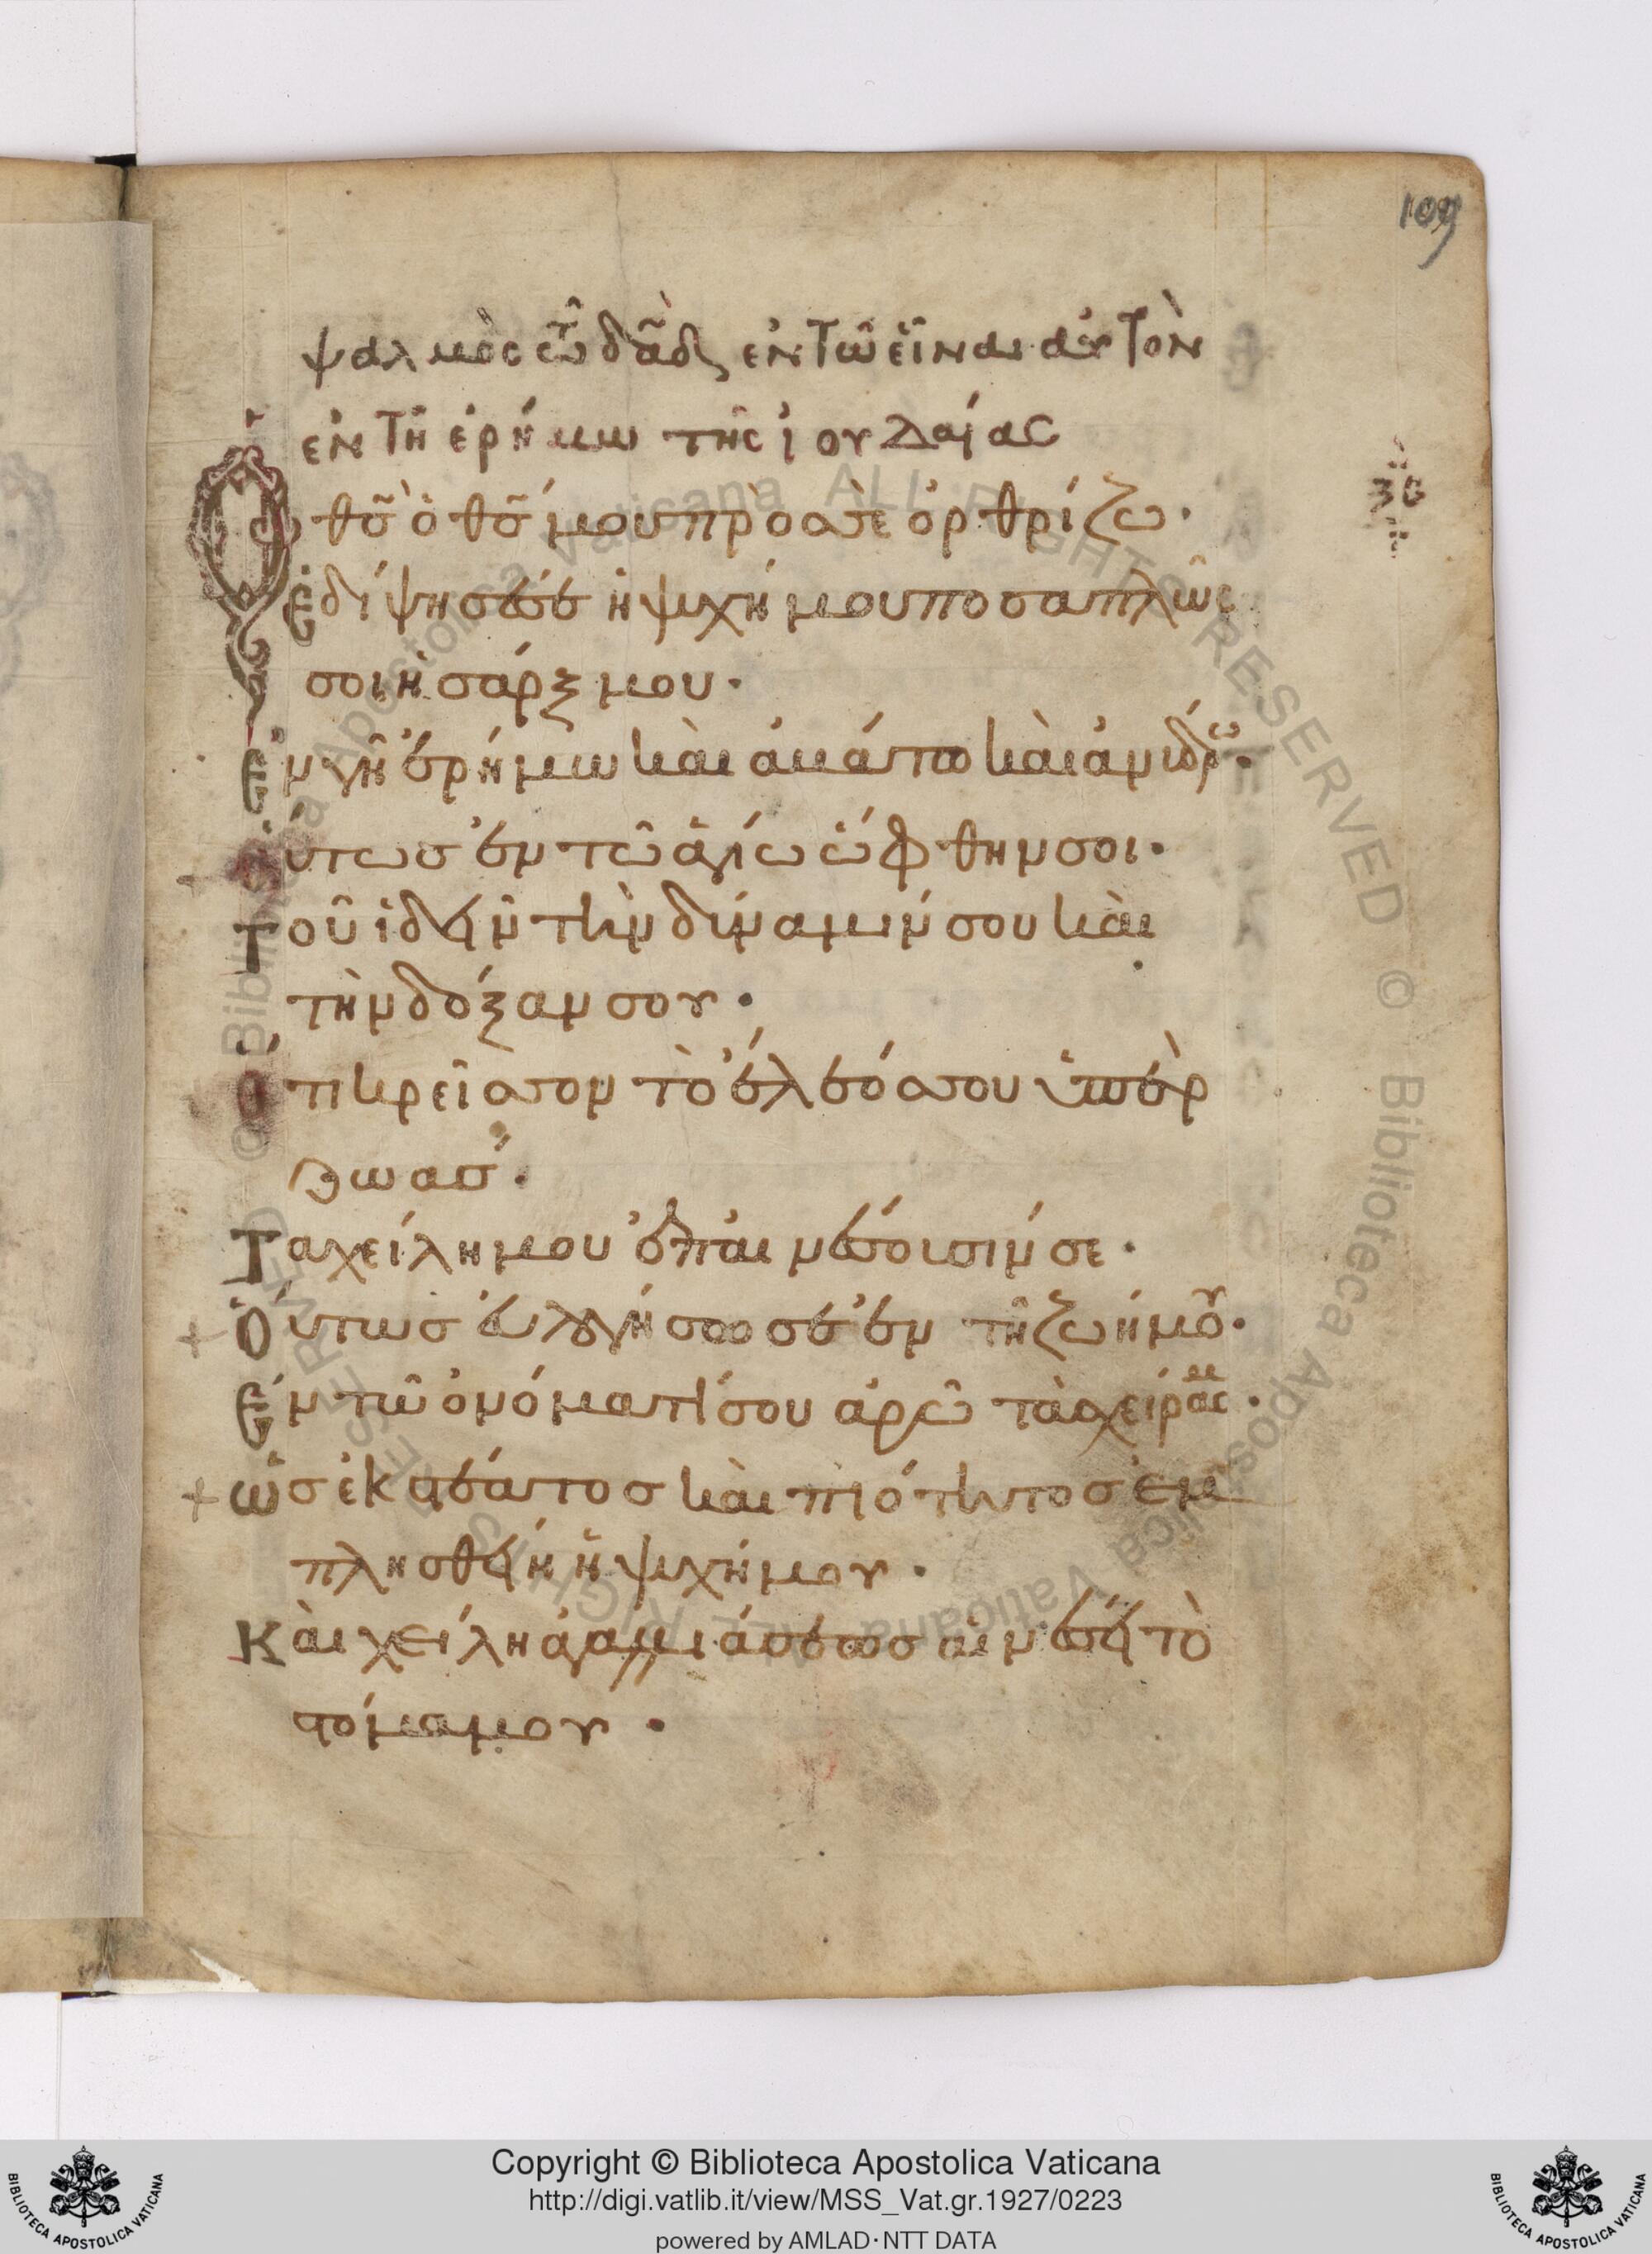 109
ψαλμὸς τῶ δᾱδ ἐν τῶ εἶναι αὐτὸν
ἐν τῆ ἐρήμω τῆς ἰουδαίας
Ὁ θ̅σ̅ ὁ θ̅σ̅ μου πρὸσ σὲ ὀρθρίζω·
ξβ
Ἐδίψησέ σε ἡ ψυχή μου ποσαπλῶς
σοι ἡ σάρξ μου·
Ἐν γῆ ἐρήμω καὶ ἀβάτω καὶ ἀνύδρω·
Οὕτωσ ἐν τῶ ἁγίω ὤφθην σοι·
Τοῦ ἰδεῖν τὴν δύναμίν σου καὶ
τὴν δόξαν σου·
Ὅτι κρεῖσσον τὸ ἔλεόσ σου ὑπὲρ
ζωάσ·
Τα χείλη μου ἐπαινέσουσίν σε·
Οὕτωσ εὐλογήσω σε ἐν τῆ ζωῆ μου·
Ἐν τῶ ὀνόματί σου ἀρῶ τὰσ χεῖρας·
Ὡσ ἐκ στέατοσ καὶ πιότητοσ ἐμ
πλησθείη ἡ ψυχή μου·
Καὶ χείλη ἀγαλλιάσεωσ αἰνέσει τὸ
στόμα μου·
Copyright © Biblioteca Apostolica Vaticana
http://digi.vatlib.it/view/MSS_Vat.gr.1927/0223
powered by AMLAD·NTT DATA
BIBLIOTECA APOSTOLICA VATICANA
BIBLIOTECA APOSTOLICA VATICANA